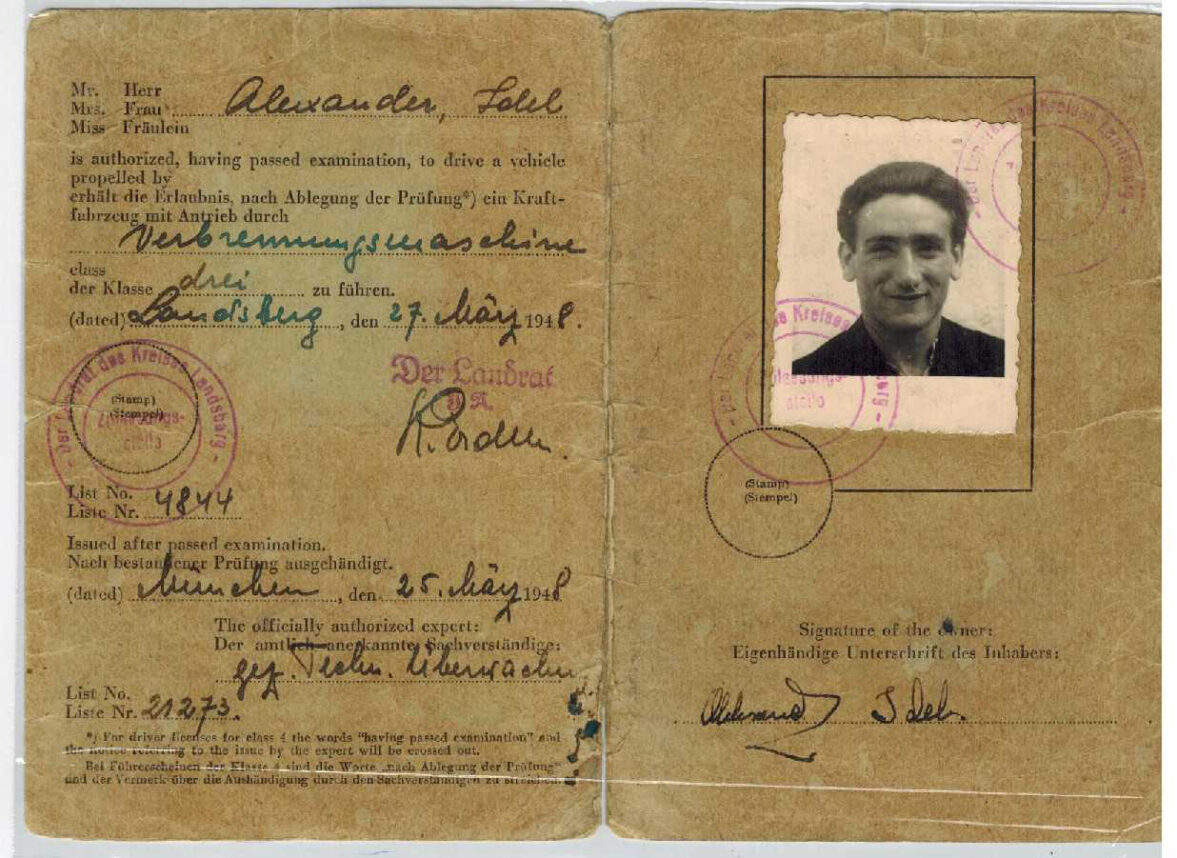 Mr. Herr
Mrs. Frau Alexander, Idel
Miss Fräulein
is authorized, having passed examination, to drive a vehicle
propelled by
erhält die Erlaubnis, nach Ablegung der Prüfung*) ein Kraft-
fahrzeug mit Antrieb durch
Verbrennungsmaschine
class
der Klasse drei zu führen.
(dated) Landsberg, den 27. März 1948.
Der Landrat des Kreises Landsberg
Zulassungs-
stelle
(Stamp)
(Stempel)
Der Landrat
List No.
Liste Nr. 4844
Issued after passed examination.
Nach bestandener Prüfung ausgehändigt.
(dated) München, den 25. März 1948
The officially authorized expert:
Der amtlich anerkannte Sachverständige:
gez. Techn. Überwachn
List No.
Liste Nr. 21273.
*) For driver licenses for class 4 the words "having passed examination" and
the notice referring to the issue by the expert will be crossed out.
Bei Führerscheinen der Klasse 4 sind die Worte „nach Ablegung der Prüfung"
und der Vermerk über die Aushändigung durch den Sachverständigen zu streichen.
Der Landrat des Kreises Landsberg
Der Landrat des Kreises Landsberg
Zulassungs-
stelle
(Stamp)
(Stempel)
Signature of the owner:
Eigenhändige Unterschrift des Inhabers:
Idel.